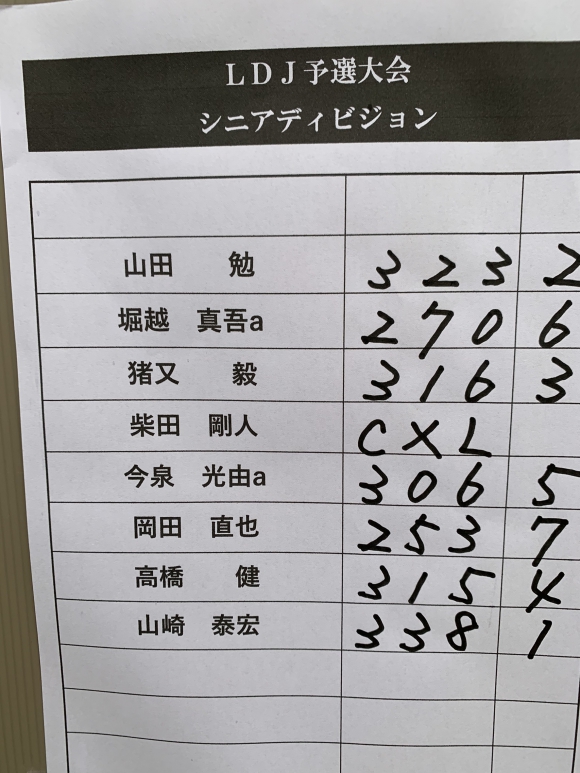 ＬＤＪ予選大会
シニアディビジョン
山田　勉 323 2
堀越　真吾a 270 6
猪又　毅 316 3
柴田　剛人 CXL
今泉　光由a 306 5
岡田　直也 253 7
高橋　健 315 4
山崎　泰宏 338 1